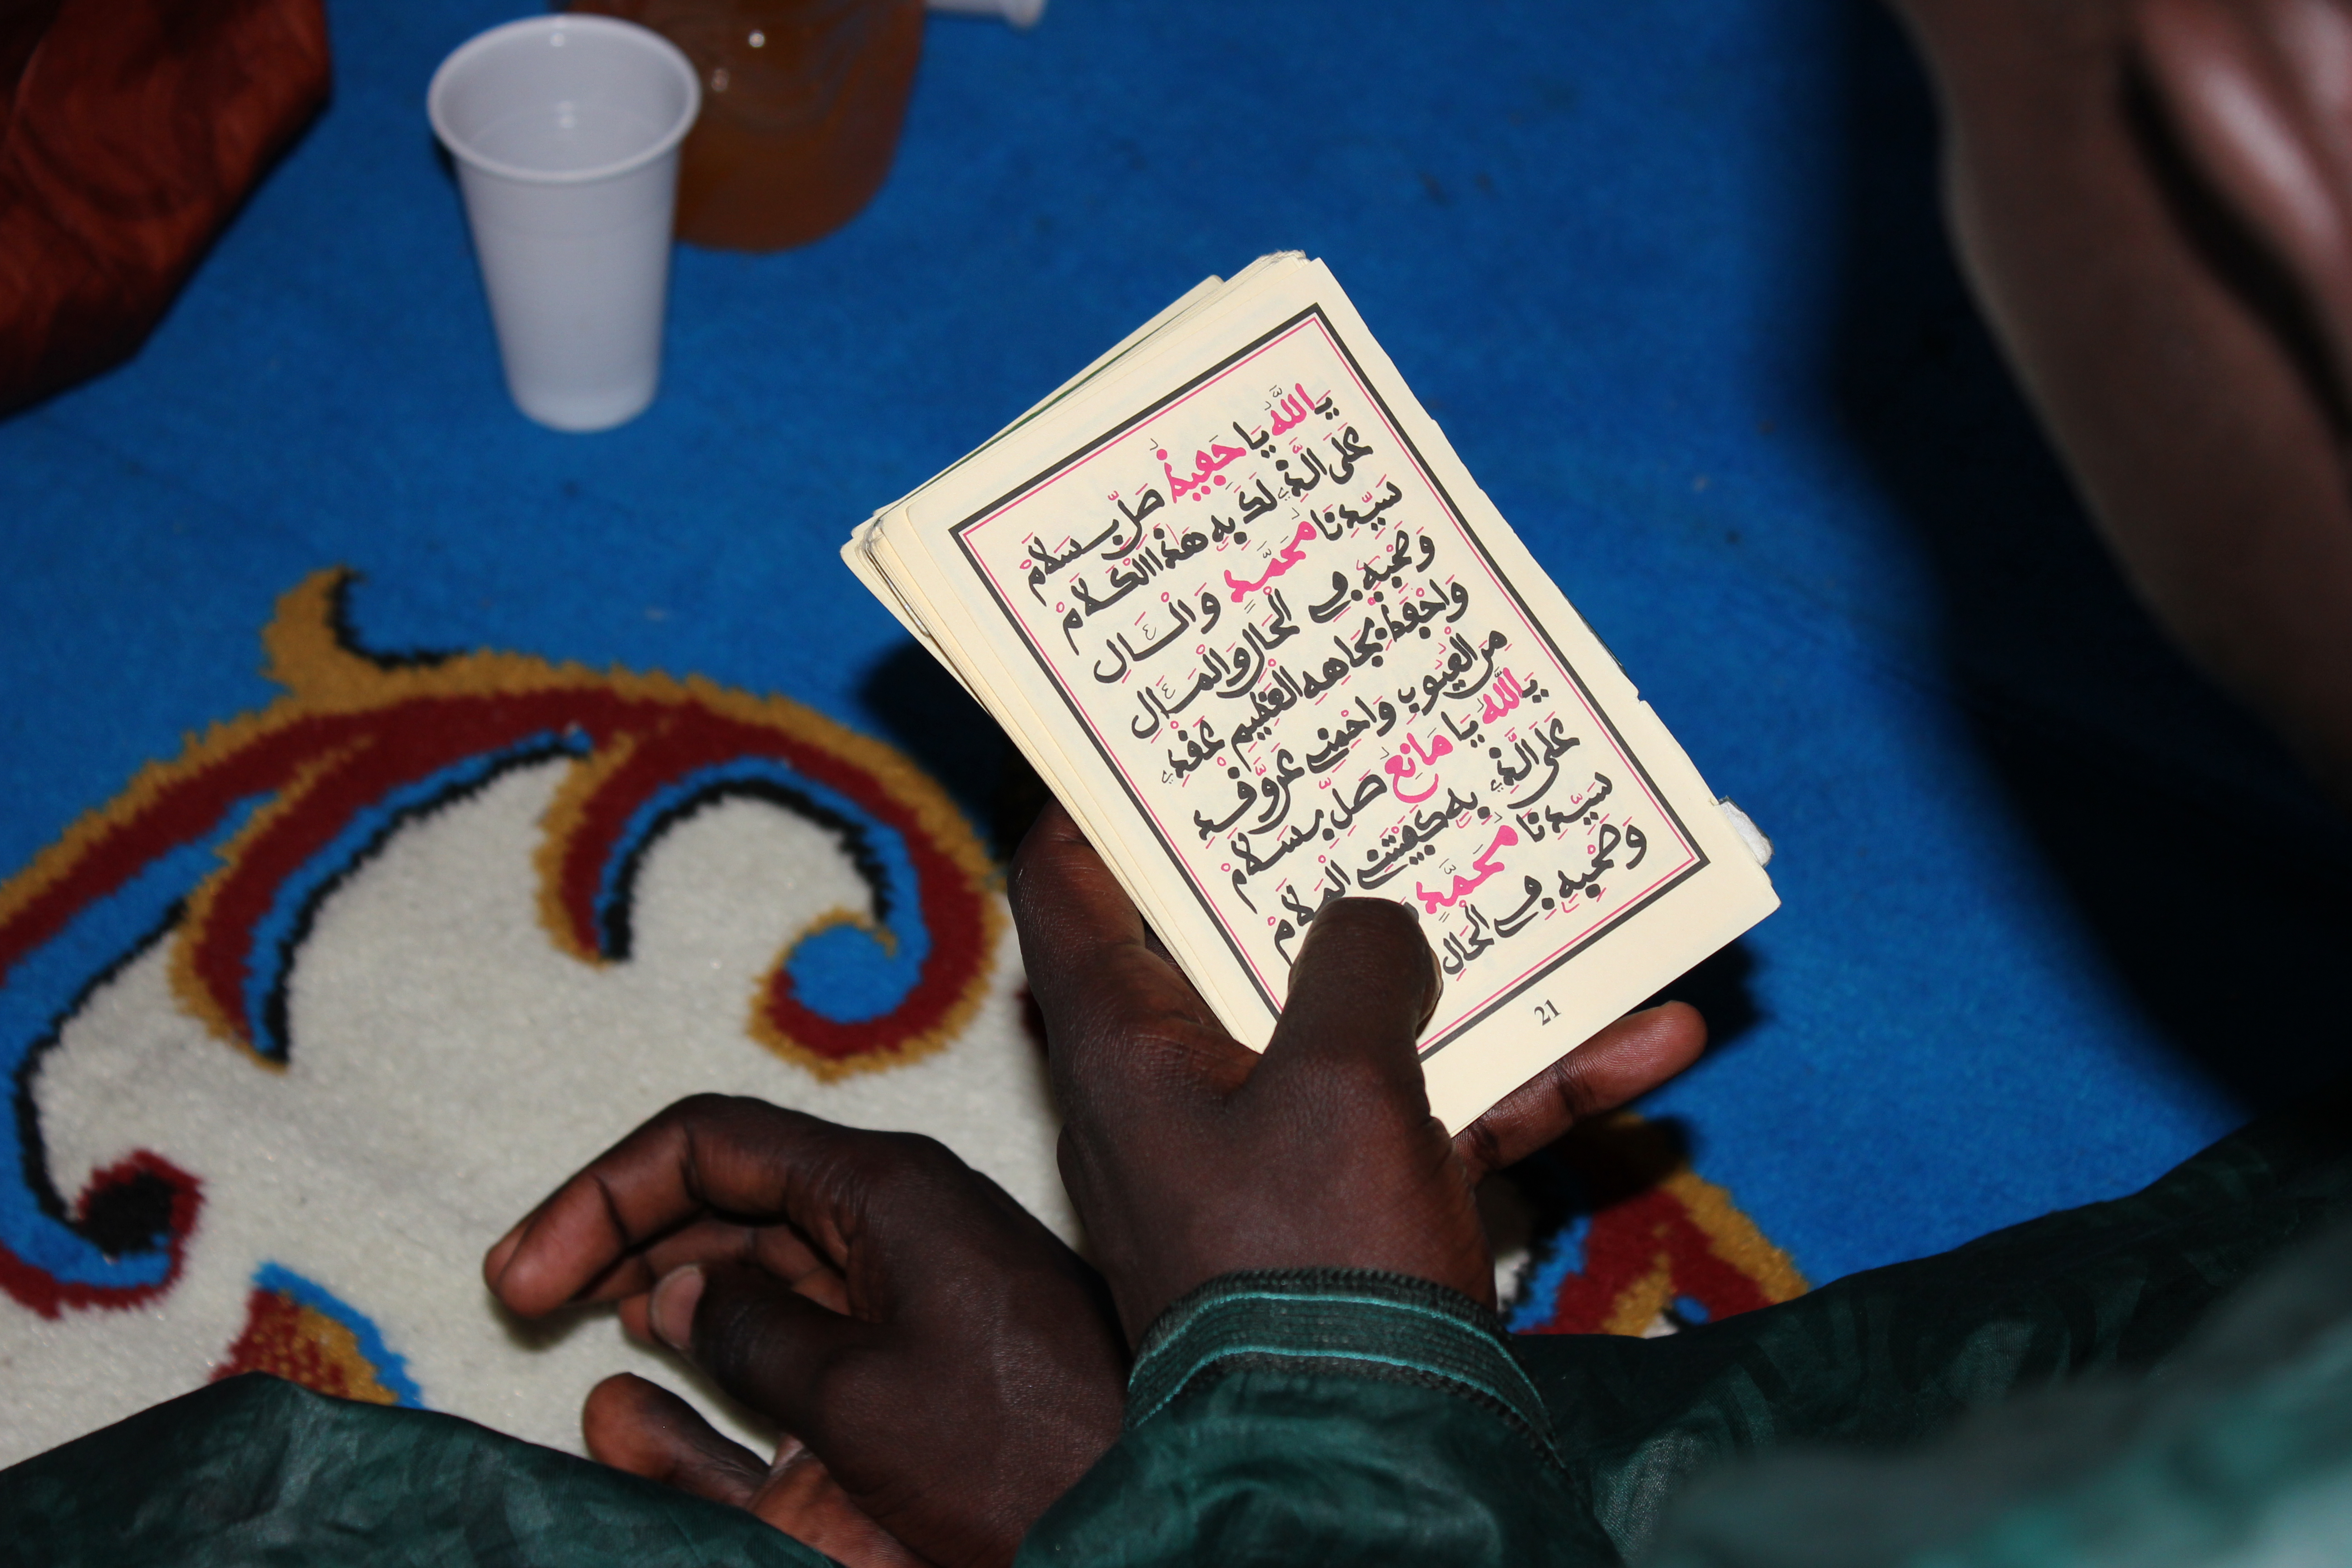 يَاللَّهُ يَا حَفِيظُ صَلِّ بِسَلَامْ
عَلَى الَّذِي لَذَّ بِهِ هَذَا الْكَلَامْ
سَيِّدِنَا مُحَمَّدٍ وَالْآلِ
وَصَحْبِهِ فِي الْحَالِ وَالْمَآلِ
وَاحْفَظْ بِجَاهِهِ الْعَظِيمِ عَقْدِي
مِنَ الْعُيُوبِ
يَاللَّهُ يَا مَانِعُ صَلِّ بِسَلَامْ
عَلَى الَّذِي بِهِ كَفَيْتَ الْمَلَامْ
سَيِّدِنَا مُحَمَّدٍ
وَصَحْبِهِ فِي الْحَالِ
21